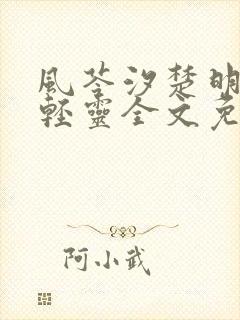 風苓汐楚明
輕靈全文免
阿小武